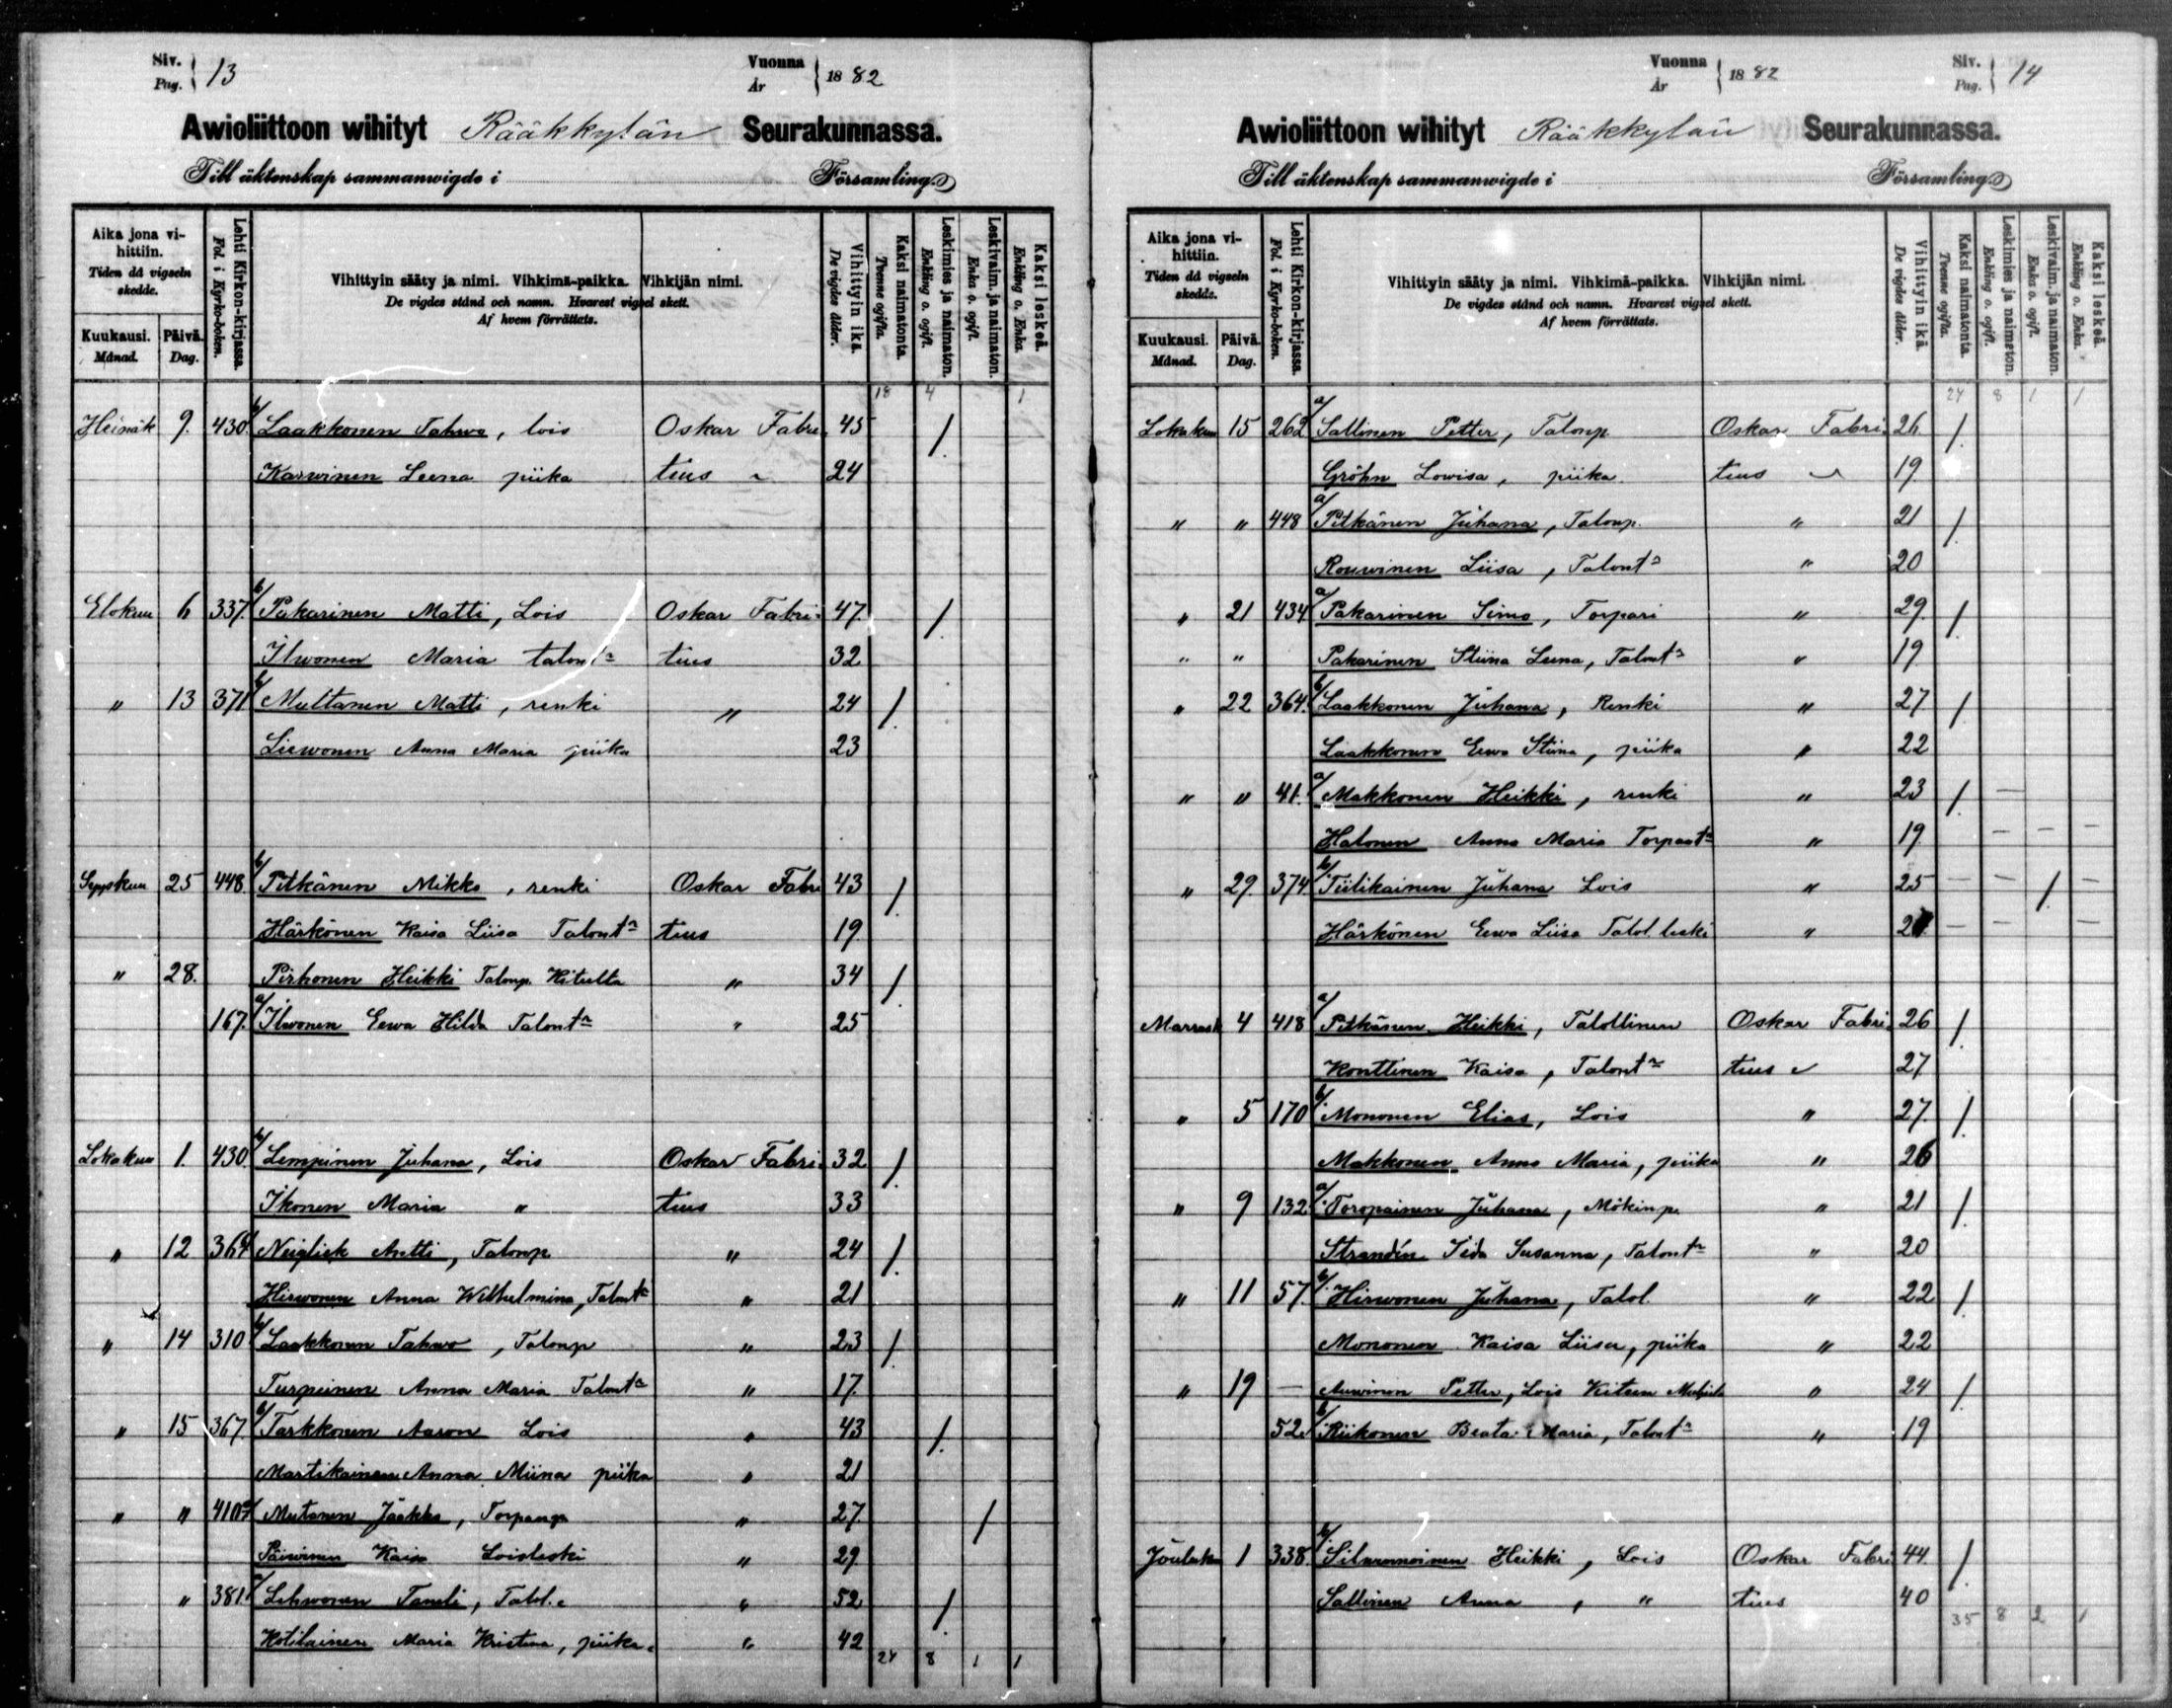 Siv.
Pag. 13
Vuonna
År 1882
Awioliittoon wihityt Rääkkylän Seurakunnassa.
Till äktenskap sammanwigde i Församling.
Aika jona vihittiin.
Tiden då vigseln skedde.
Kuukausi. Månad.
Päivä. Dag.
Lehti Kirkon-kirjassa.
Fol. i Kyrko-boken.
Vihittyin sääty ja nimi. Vihkimä-paikka. Vihkijän nimi.
De vigdes stånd och namn. Hvarest vigsel skett.
Af hvem förrättats.
Vihittyin ikä.
De vigdes ålder.
Kaksi naimatonta.
Tvenne ogifta.
Leskimies ja naimaton.
Enkling o. ogift.
Leskivaim. ja naimaton.
Enka o. ogift.
Kaksi leskeä.
Enkling o. Enka.
18 4 1
Heinäk 9. 430 b/ Laakkonen Tahwo, lois Oskar Fabri 45 /.
Karwinen Leena piika tius 24
Elokuu 6 337 b/ Pakarinen Matti, Lois Oskar Fabri- 47 /.
Ilwonen Maria talont:r tius 32
" 13 371 b/ Multanen Matti, renki " 24 /.
Liewonen Anna Maria piika 23
Syyskuu 25 448 b/ Pitkänen Mikko, renki Oskar Fabri 43 /.
Härkönen Kaisa Liisa Talont:r tius 19
" 28. Pirhonen Heikki Talonp. Kiteelta " 34 /.
167. a/ Ilwonen Eewa Hilda Talont:r " 25
Lokakuu 1. 430 b/ Lempinen Juhana, Lois Oskar Fabri- 32 /.
Ikonen Maria " tius 33
" 12 364 Neiglick Antti, Talonp " 24 /.
Hirwonen Anna Wilhelmina, Talont:r " 21
" 14 310 b/ Laakkonen Tahwo, Talonp " 23 /.
Turpeinen Anna Maria Talont:r " 17.
" 15 367 b/ Tarkkonen Aaron Lois " 43 /.
Martikainen Anna Miina piika " 21
" " 410 a/ Mutanen Jaakko, Torpanp " 27. /
Kaisa Loisleski " 29
" 381 a/ Lehwonen Taneli, Talol. " 52 /.
Kotilainen Maria Kristina, piika. " 42
24 8 1 1
Vuonna
År 1882
Siv.
Pag. 14
Awioliittoon wihityt Rääkkylän Seurakunnassa.
Till äktenskap sammanwigde i Församling.
Aika jona vihittiin.
Tiden då vigseln skedde.
Kuukausi. Månad.
Päivä. Dag.
Lehti Kirkon-kirjassa.
Fol. i Kyrko-boken.
Vihittyin sääty ja nimi. Vihkimä-paikka. Vihkijän nimi.
De vigdes stånd och namn. Hvarest vigsel skett.
Af hvem förrättats.
Vihittyin ikä.
De vigdes ålder.
Kaksi naimatonta.
Tvenne ogifta.
Leskimies ja naimaton.
Enkling o. ogift.
Leskivaim. ja naimaton.
Enka o. ogift.
Kaksi leskeä.
Enkling o. Enka.
24 8 1 1
Lokakuu 15 262 a/ Sallinen Petter, Talonp Oskar Fabri- 26 /.
Gröhn Lowisa, piika. tius 19
" " 448 a/ Pitkänen Juhana, Talonp. " 21 /.
Rouwinen Liisa, Talont:r " 20
" 21 434 a/ Pakarinen Simo, Torpari " 29. /.
" " Pakarinen Stiina Leena, Talont:r " 19
" 22 364. b/ Laakkonen Juhana, Renki " 27 /.
Laakkonen Eewa Stiina, piika " 22
" " 41. a/ Makkonen Heikki, renki " 23 /. —
Halonen Anna Maria Torpant:r " 19. — — —
" 29. 374. b/ Tiilikainen Juhana Lois " 25 — — /. —
Härkönen Eewa Liisa Talol. leski " — — —
Marrask 4 418 a/ Pitkänen Heikki, Talollinen Oskar Fabri 26 /.
Konttinen Kaisa, Talont:r tius 27
" 5 170 b/ Mononen Elias, Lois " 27. /.
Makkonen Anna Maria, piika " 26
" 9 132 a/ Toropainen Juhana, Mökinp. " 21 /.
Strandén Iida Susanna, Talont:r " 20
" 11 57. b/ Hirwonen Juhana, Talol. " 22 /.
Mononen Kaisa Liisa, piika " 22
" 19 — Petter, Lois Kiteen " 24 /.
52. b/ Riikonen Beata Maria, Talont:r " 19
Jouluku 1 338. b/ Heikki, Lois Oskar Fabri 44 /.
Sallinen Anna, " tius 40
35 8 2 1